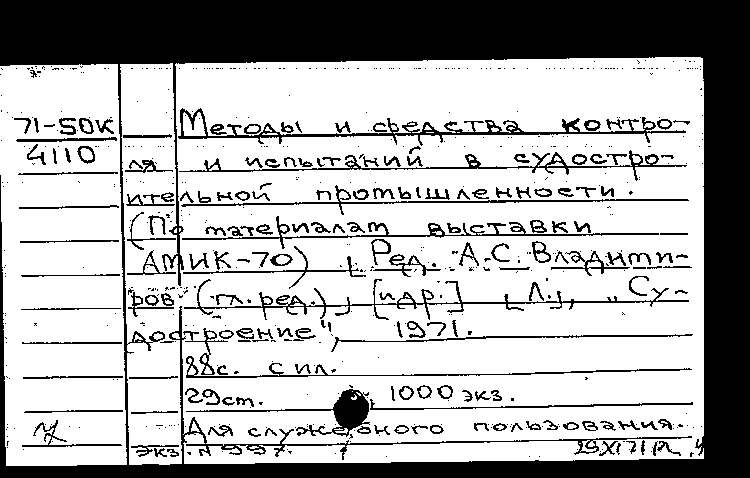 71-50К
4110
Методы и средства контро-
ля и испытаний в судостро-
ительной промышленности.
(По материалам выставки
АМИК-70) [Ред. А.С. Владими-
ров (гл. ред.)] [и др.] [Л.], „Су-
достроение", 1971.
88с. с ил.
29см. 1000 экз.
Для служебного пользования.
экз. N 997.